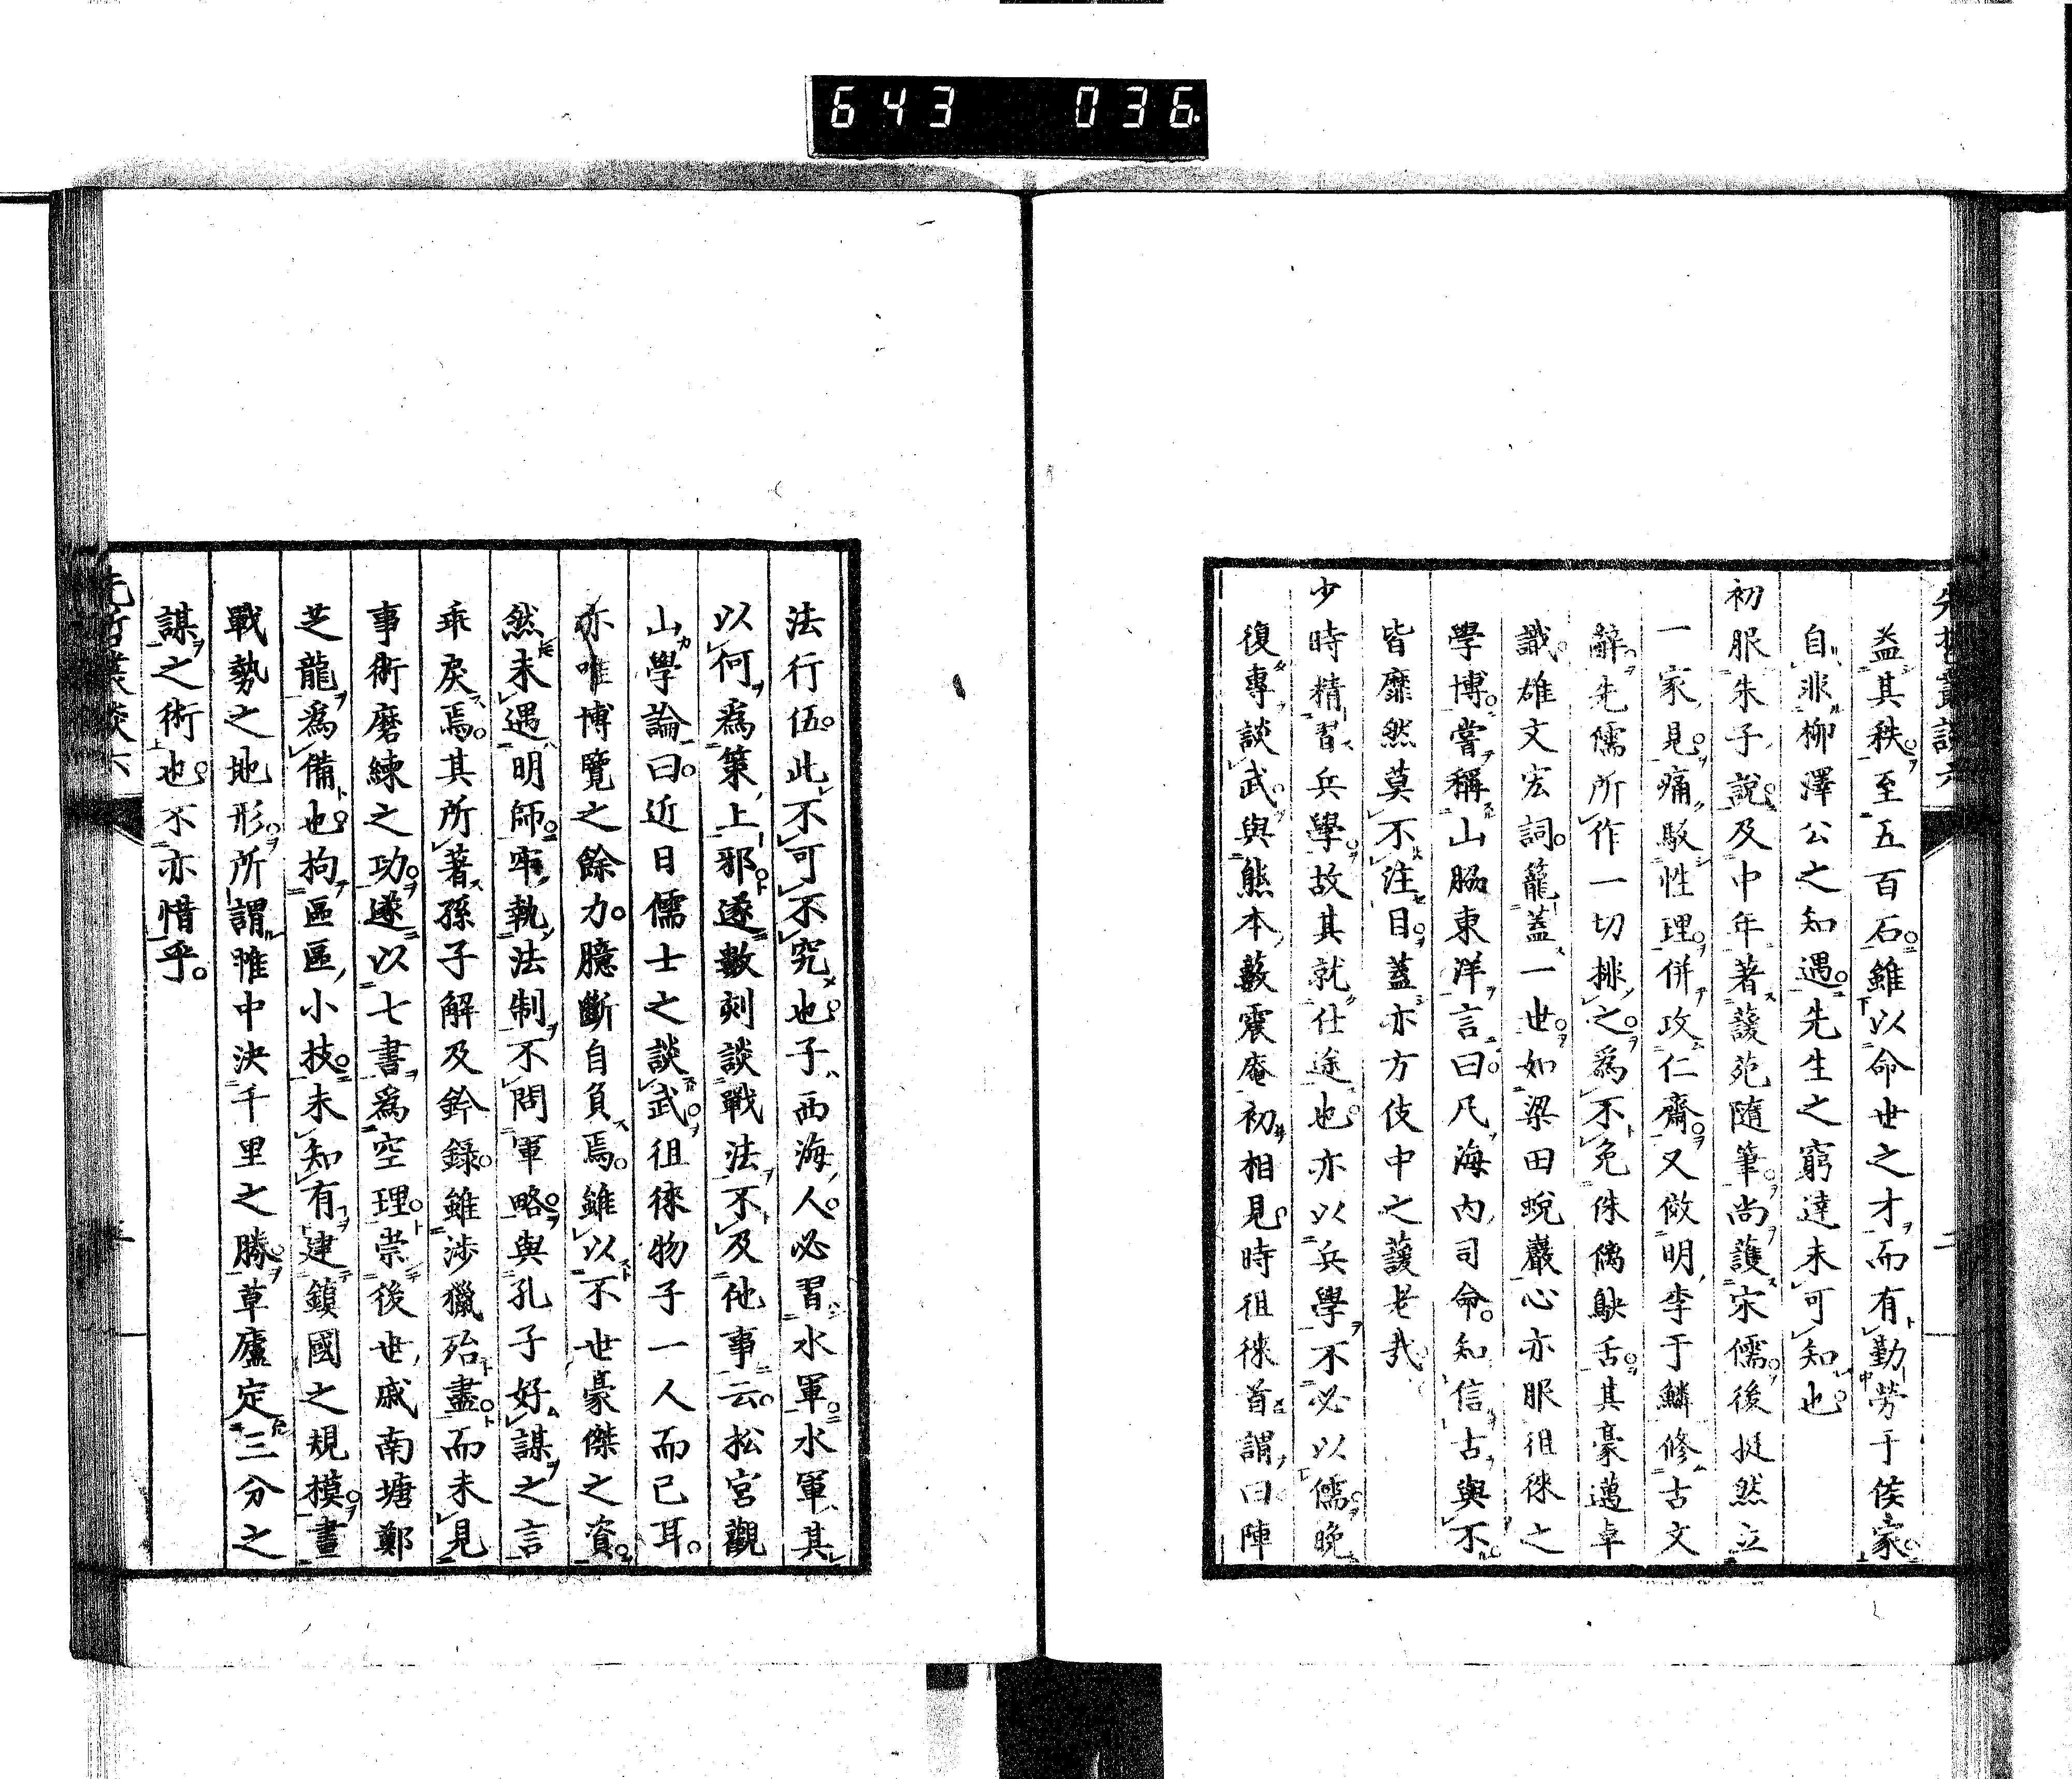 643 036
益其秩至五百石雖以命世之才而有勤勞于侯家
自非柳澤公之知遇先生之窮達未可知也
初服朱子説及中年著蘐苑隨筆尚護宋儒後挺然立
一家見痛駁性理併攻仁齋又倣明李于鱗修古文
辭先儒所作一切排之爲不免侏𠌯鴃舌其豪邁卓
識雄文宏詞籠蓋一世如梁田蛻巖心亦服徂徠之
學博嘗稱山脇東洋言曰凡海内司命知信古與不
皆靡然莫不注目蓋亦方伎中之蘐老哉
少時精習兵學故其就仕途也亦以兵學不必以儒晚
復專談武與熊本藪震庵初相見時徂徠首謂曰陣
法行伍此不可不究也子西海人必習水軍水軍其
以何爲策上邪遂數刻談戰法不及他事云松宮觀
山學論曰近日儒士之談武徂徠物子一人而已耳
亦唯博覽之餘力臆斷自負焉雖以不世豪傑之資
然未遇明師牢執法制不問軍略與孔子好謀之言
乖戾焉其所著孫子解及鈐録雖渉獵殆盡而未見
事術磨練之功遂以七書爲空理崇後世戚南塘鄭
芝龍爲備也拘區區小技未知有建鎖國之規模畫
戰勢之地形所謂帷中決千里之勝草廬定三分之
謀之術也不亦惜乎